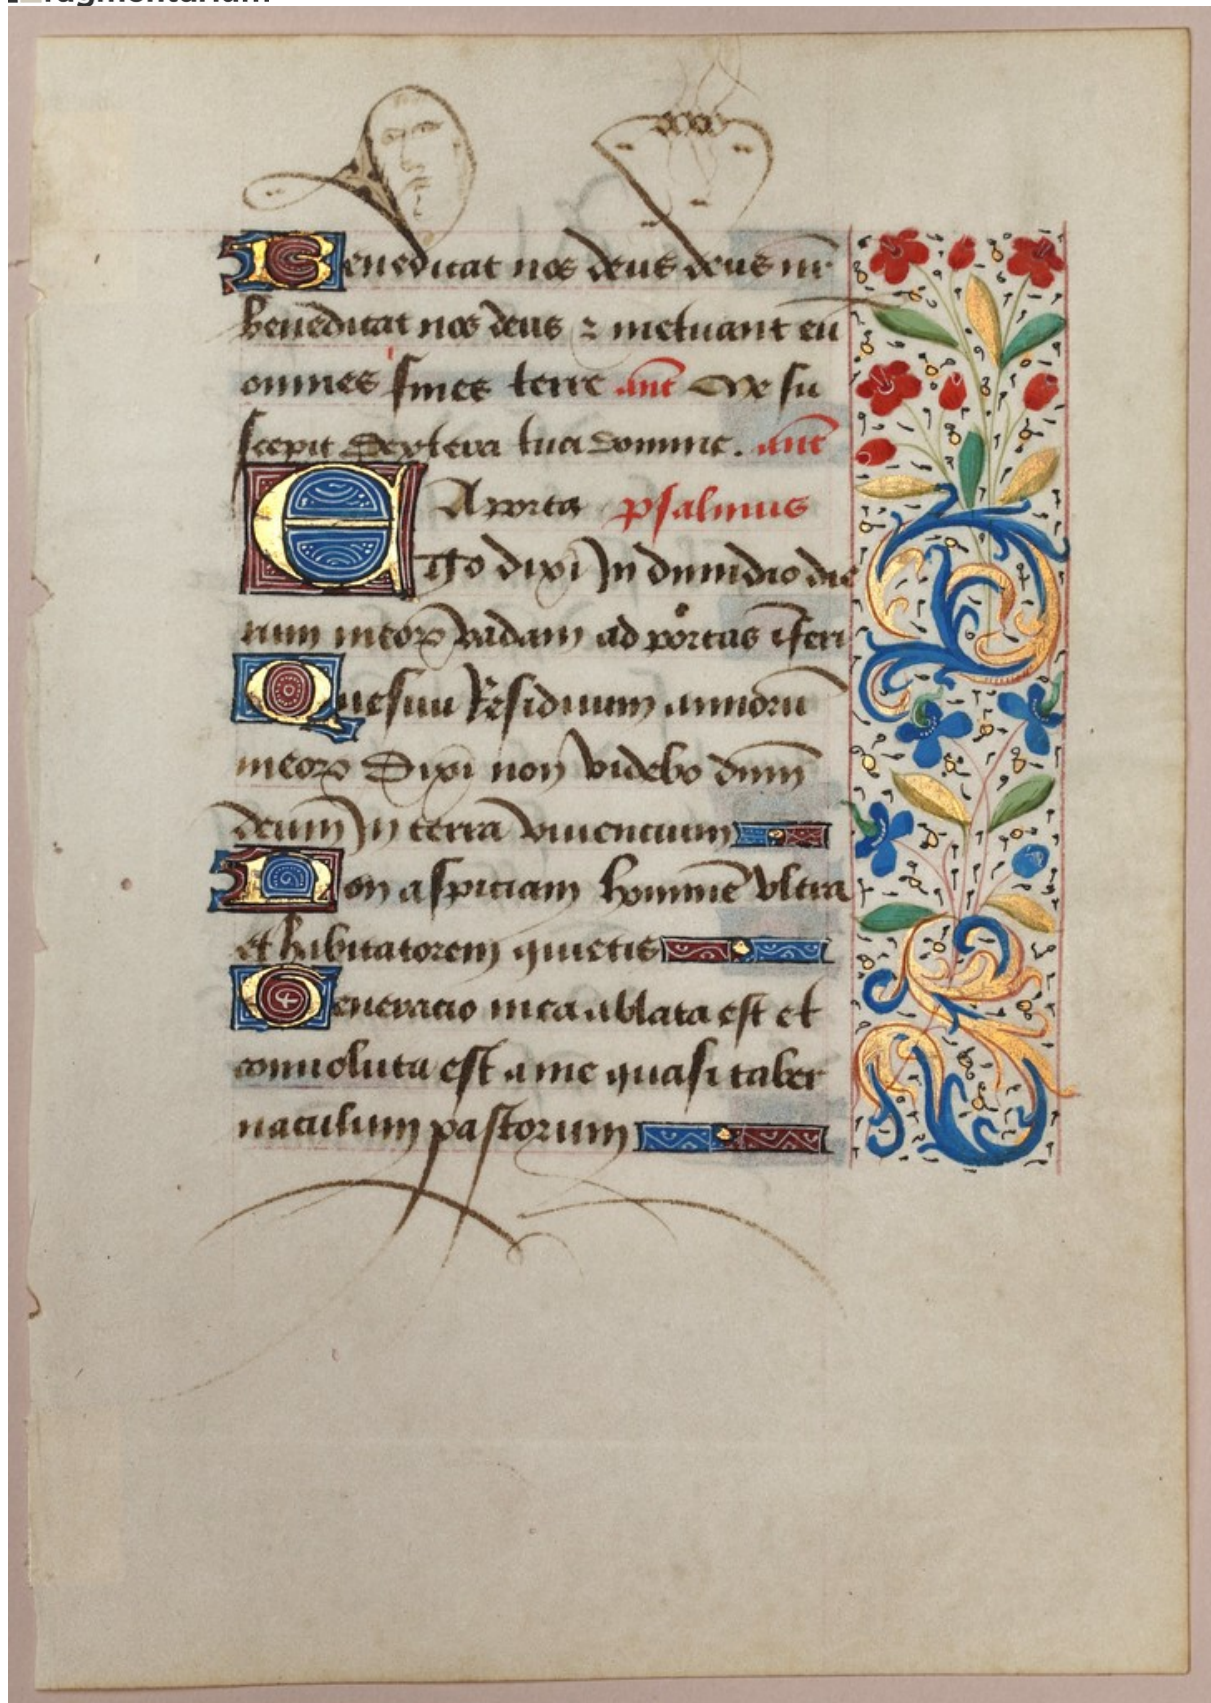 Benedicat nos deus deus nr̄
benedicat nos deus ⁊ metuant eū
omnes fines terre ant̄ Me su
scepit dextera tua domine. ant̄
A porta psalmus
Ego dixi In dimidio die
rum meoꝝ vadam ad portas īferi
Quesiui Residuum annorū
meoꝝ Dixi non videbo dnm̄
deum In terra viuencium
Non aspiciam hominē vltra
et habitatorem quietis
Generacio mea ablata est et
conuoluta est a me quasi taber
naculum pastorum